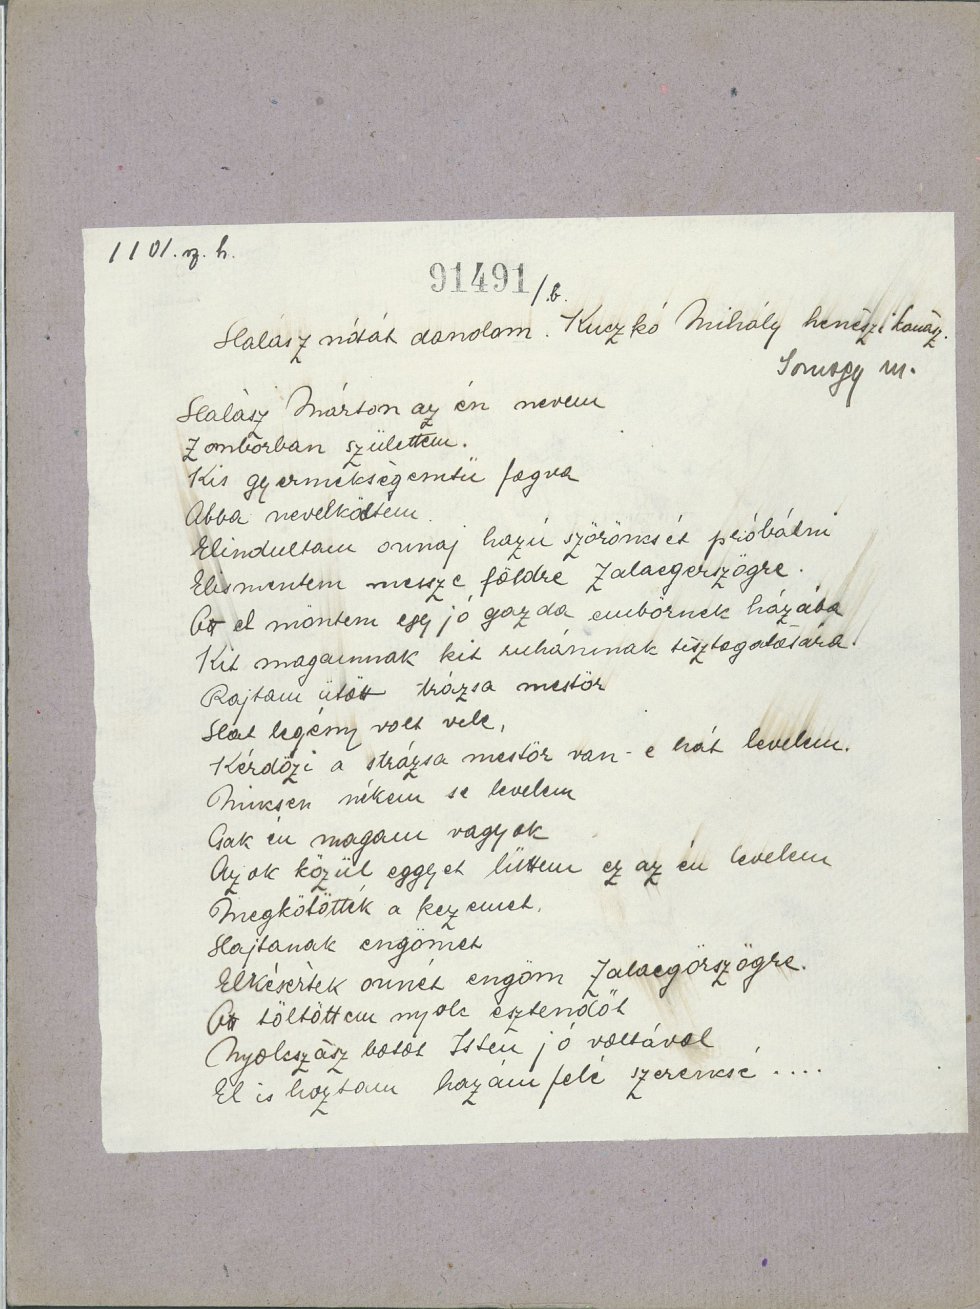 1101. sz. h.
91491/b.
Halász nótát danolom. Kuczkó Mihály henészi kanász.
Somogy m.
Halász Márton az én nevem
Zomborban születtem.
Kis gyermekségemtü fogva
Abba nevelködtem.
Elindultam onnaj hazú szörönksét próbálni
Elismentem messze földre Zalaegerszögre.
Ott el möntem egy jó gazda embörnek házába
Kit magamnak kit ruhámnak tisztogatására.
Rajtam ütött trázsa mestör
Hat legény volt vele,
Kérdözi a strázsa mestör van-e hát levelem.
Ninksen nékem se levelem
Csak én magam vagyok
Azok közül eggyet lüttem ez az én levelem
Megkötötték a kezemet,
Hajtanak engömet
Elkésértek onnét engöm Zalaegörszögre.
Ott töltöttem nyolc esztendőt
Nyolcszász botot Isten jó voltával
El is hoztam hazám felé szerenksé ....